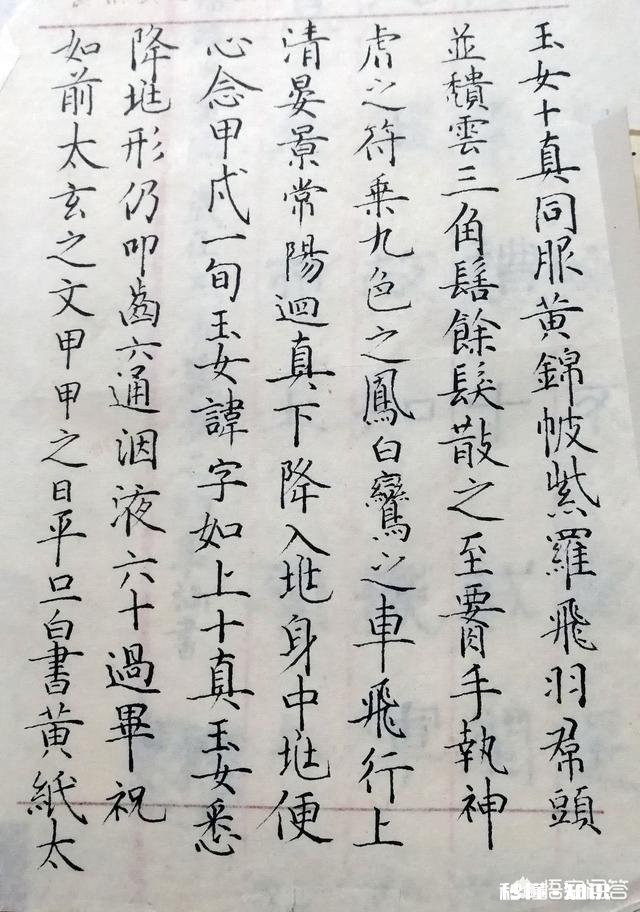 玉女十真同服黃錦帔紫羅飛羽帬頭
並穨雲三角髻餘髮散之至腰手執神
虎之符乗九色之鳳白鸞之車飛行上
清晏景常陽迴真下降入垗身中垗便
心念甲戌一旬玉女諱字如上十真玉女悉
降垗形仍叩齒六通洇液六十過畢祝
如前太玄之文甲甲之日平旦白書黃紙太
悟空问答